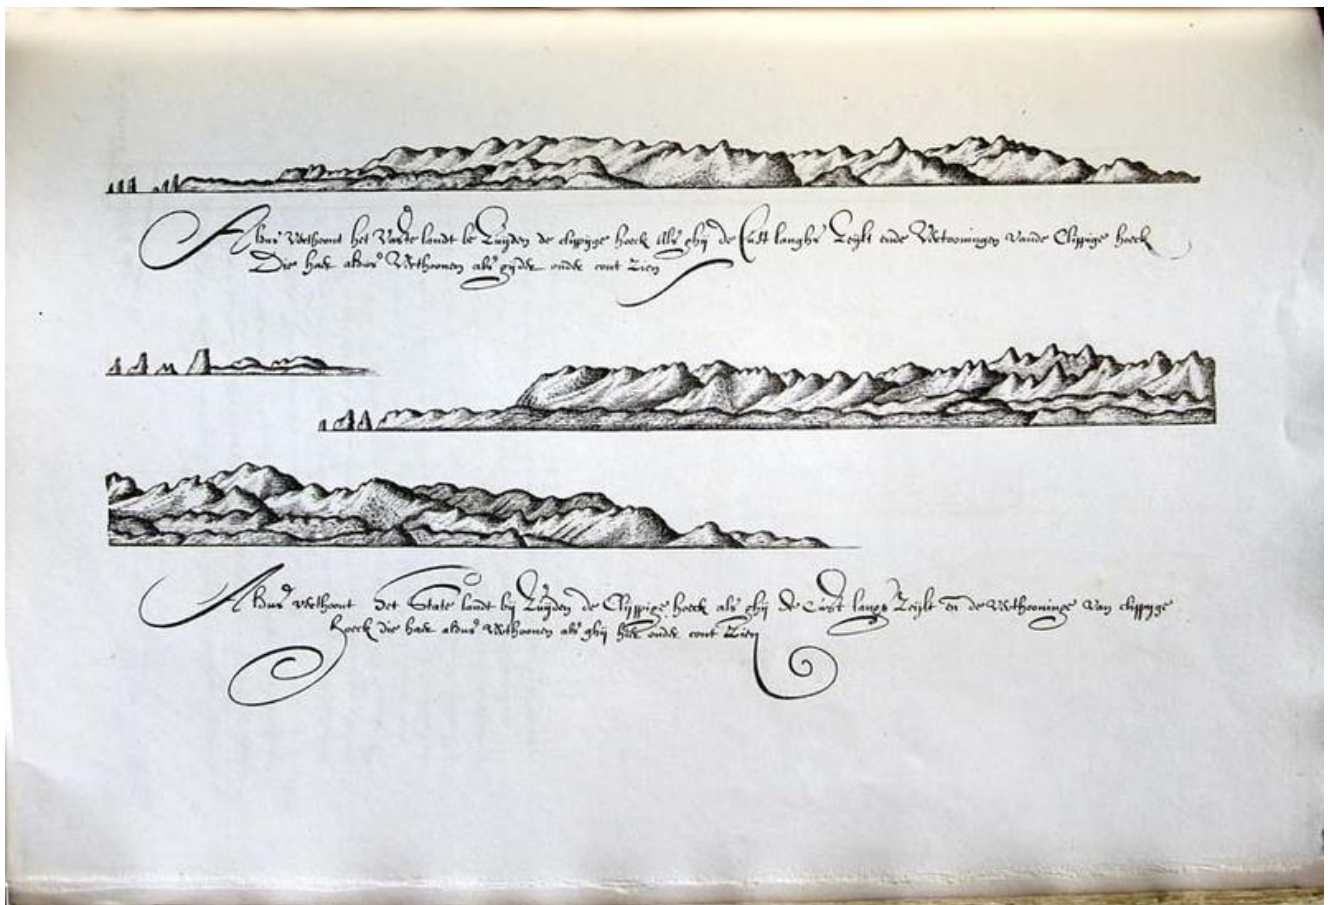 Aldus verthoont het Vaste landt be Zuijden de clippige hoeck Als ghij de Cust langhs Zeijlt ende Vertooningen vande Clippige hoeck
Die haer aldus Verthoonen als gij der onder cont Zien
Aldus verthoont Het State landt bij Zuijden de Clippige hoeck als ghij de Cust langs Zeijlt en de Verthooninge Van clippige
hoeck die haer aldus Verthoonen als ghij hier onder cont Zien